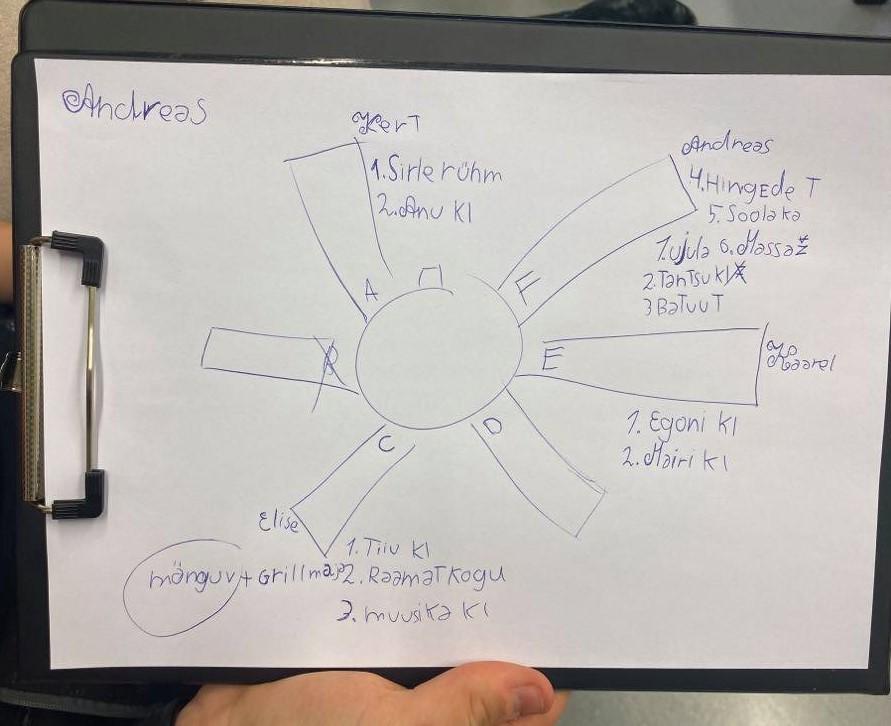 Andreas
Kert
1. Sirle rühm
2. Anu Kl
Andreas
4. Hingede T
5. Soolaka
1. Ujula 6. Massaž
2. Tantsu Kl
3 Batuut
A
F
E
Kaarel
1. Egoni Kl
2. Mairi Kl
D
C
Elise
1. Tiiu Kl
mänguv + Grillmaja 2. Raamatkogu
3. muusika Kl